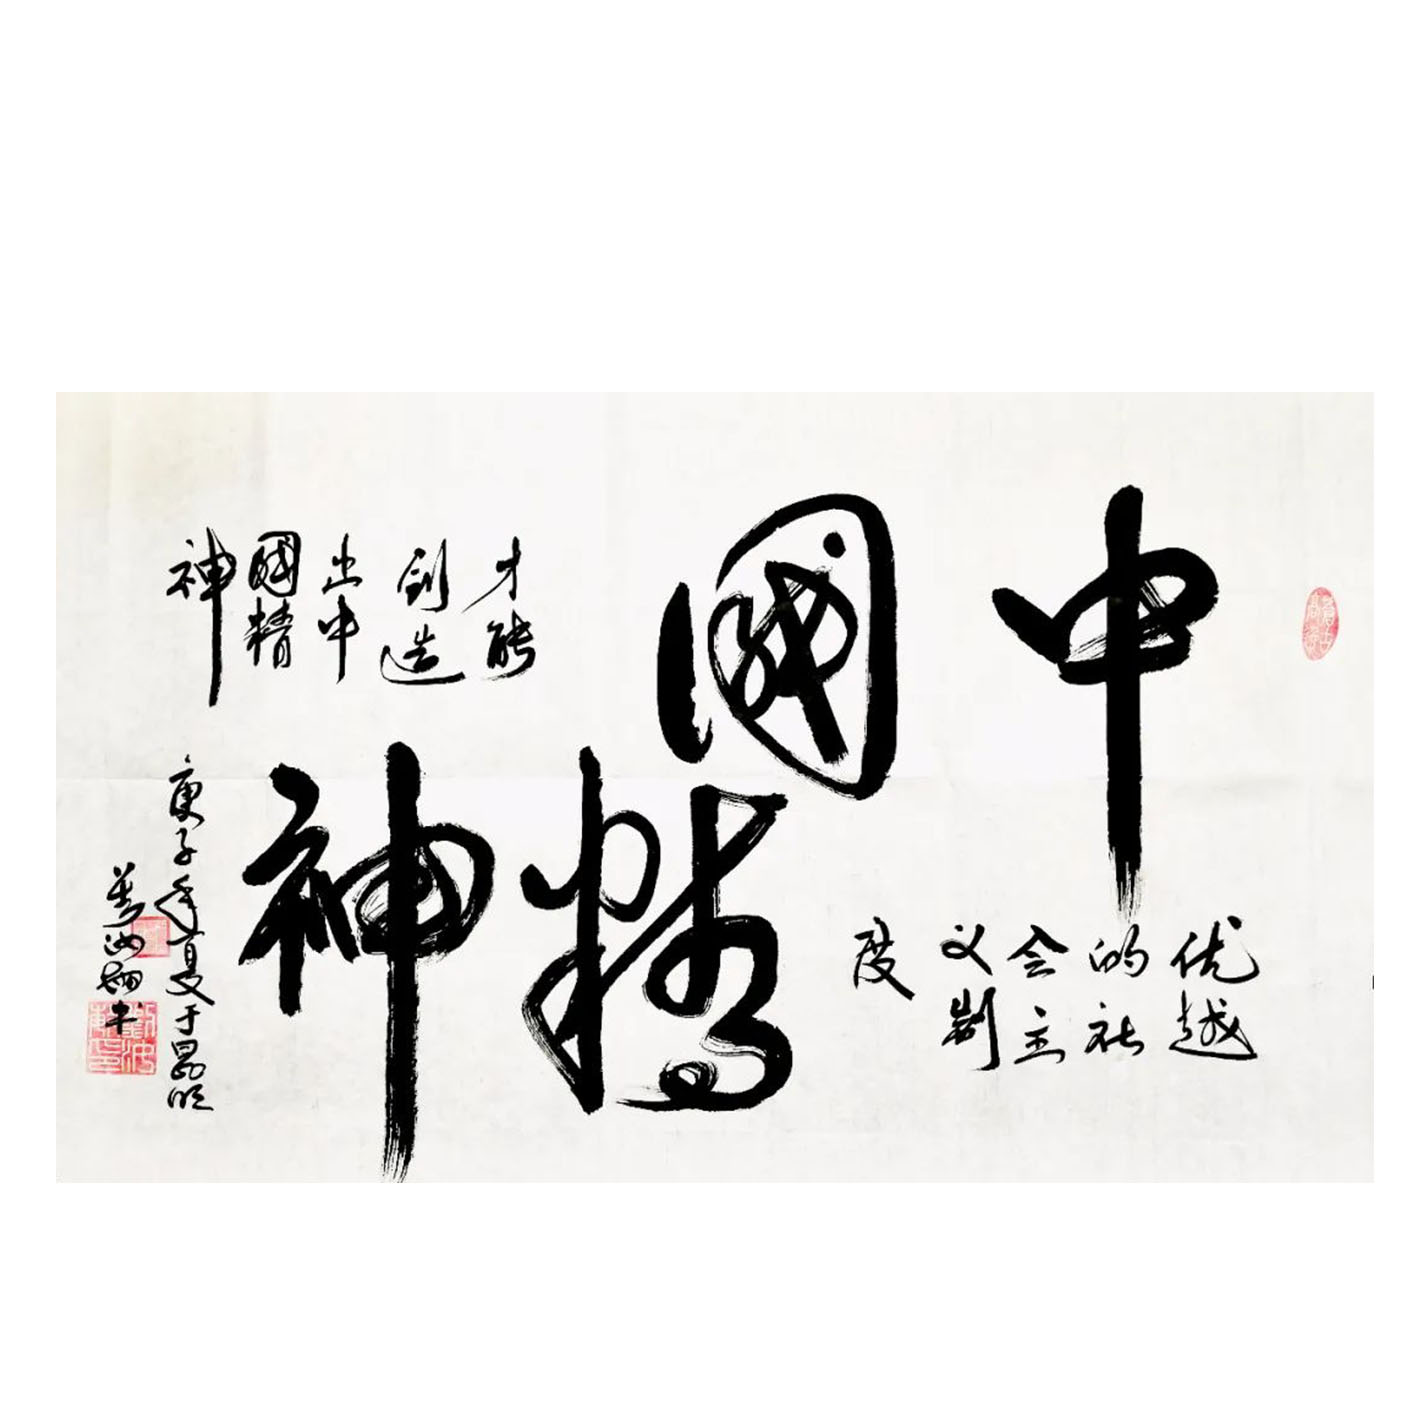 中國精神
优越
的社
会主
义制
度
才能
创造
出中
國精
神
庚子年夏于昆明
汝 书